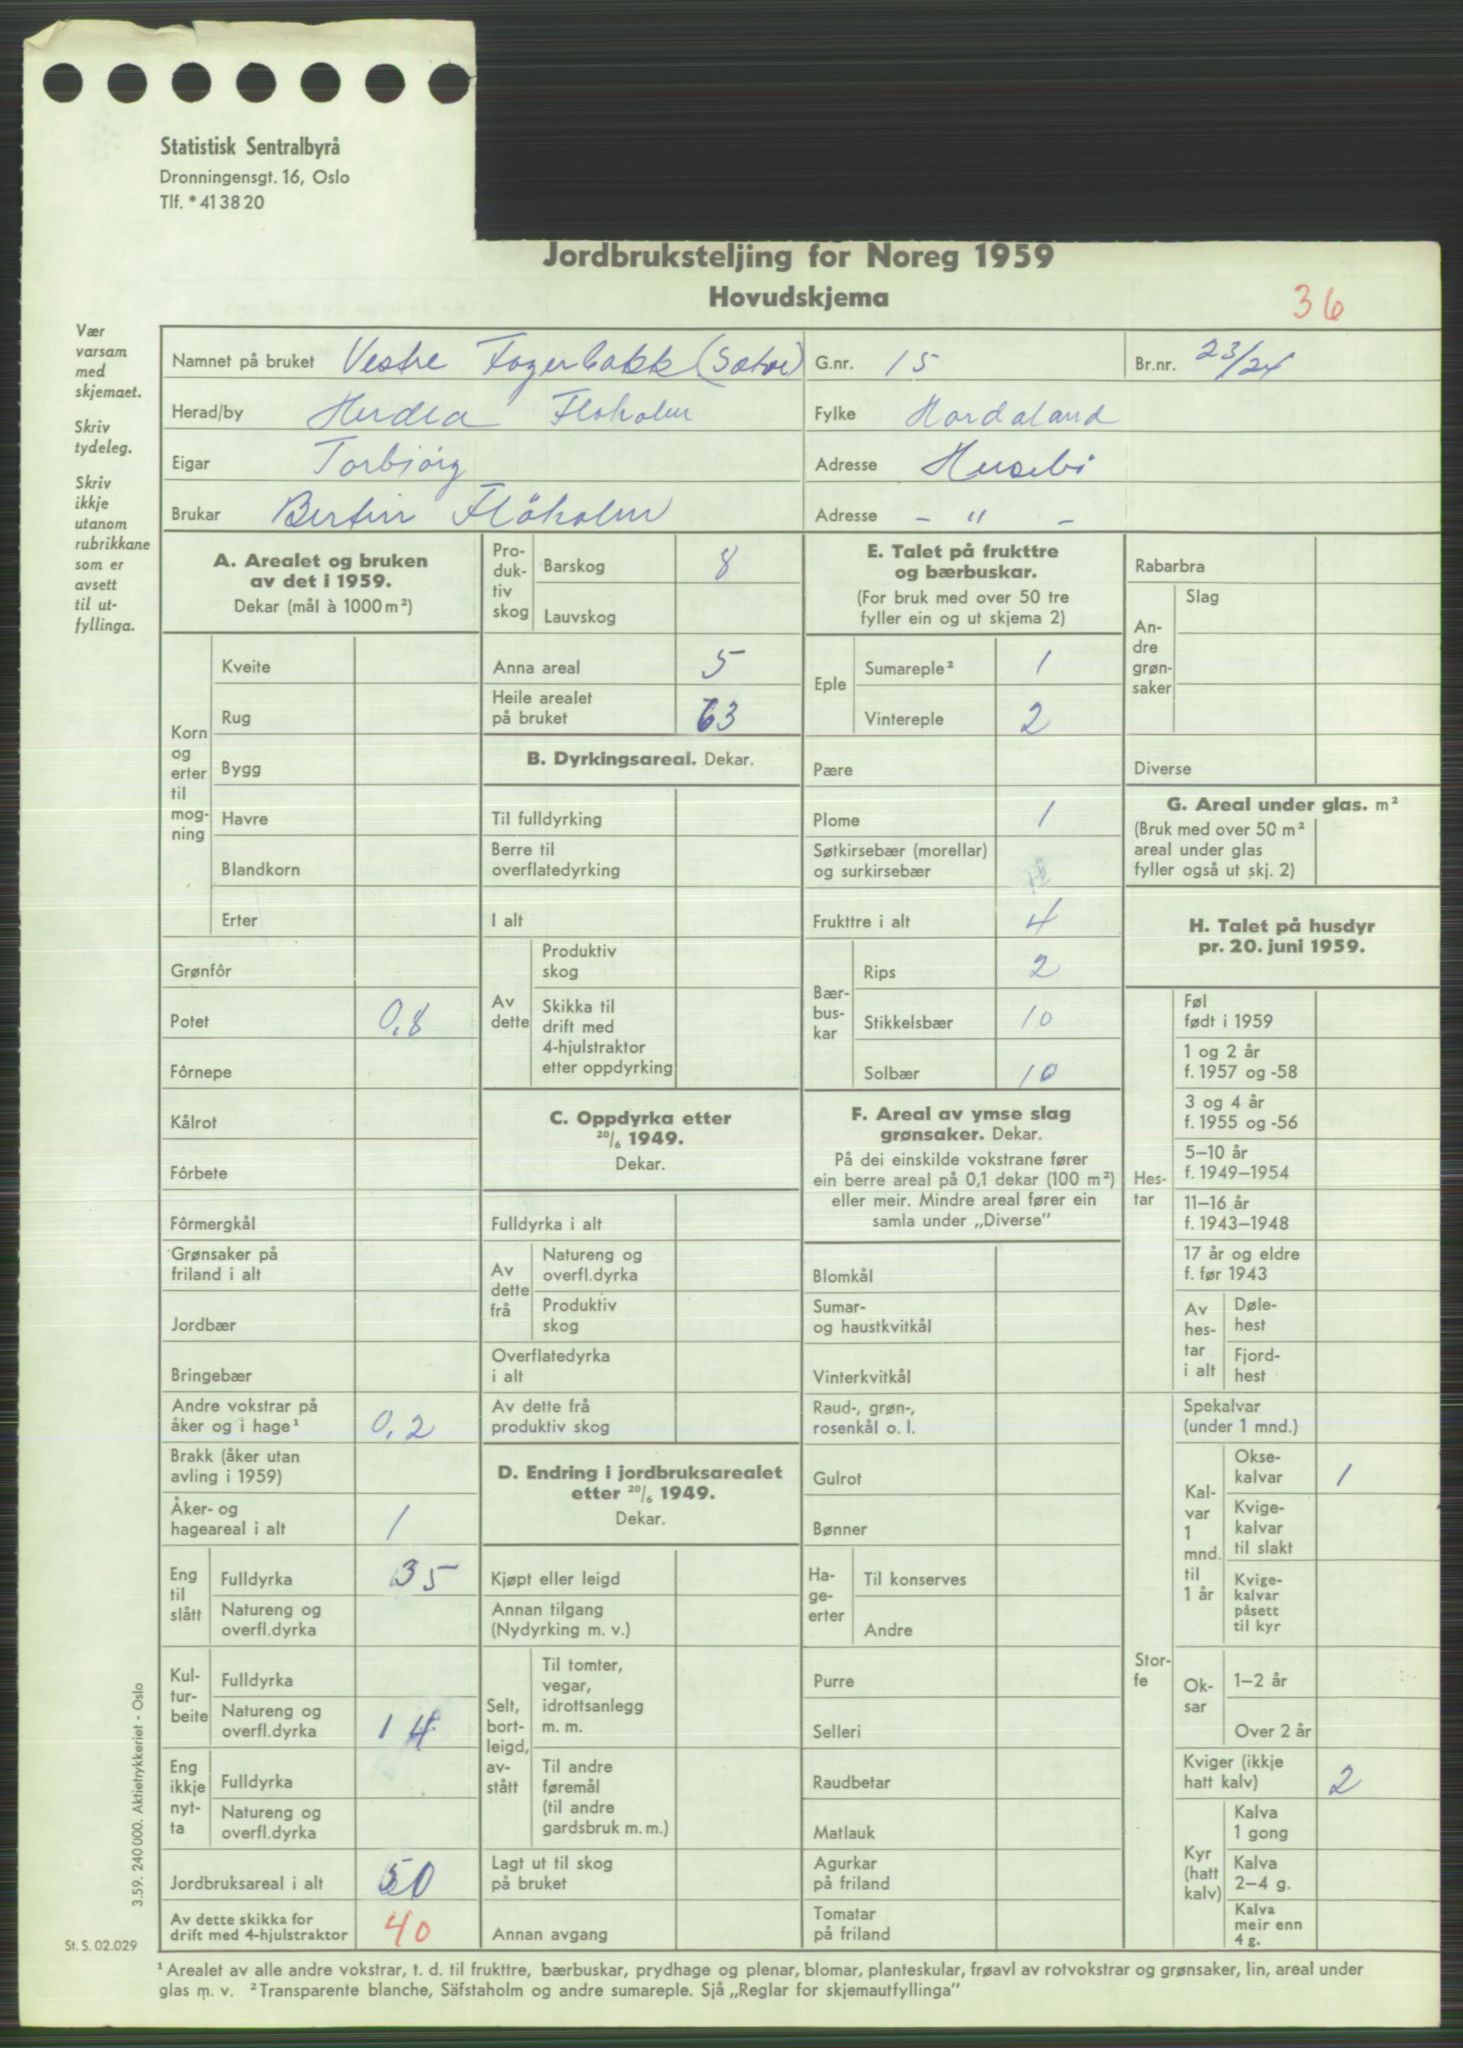 Statistisk Sentralbyrå
Dronningensgt. 16, Oslo
Tlf. * 41 38 20
Jordbruksteljing for Noreg 1959
Hovudskjema
36
Vær
varsam
med
skjemaet.
Skriv
tydeleg.
Skriv
ikkje
utanom
rubrikkane
som er
avsett
til ut-
fyllinga.
Namnet på bruket Vestre Fagerbakk (Sætre) G.nr. 15 Br.nr. 23/24
Herad/by Herdla Floholm Fylke Hordaland
Eigar Torbjörg Adresse Husebö
Brukar Bertin Flöholm Adresse - " -
A. Arealet og bruken
av det i 1959.
Dekar (mål à 1000 m²)
Korn
og
erter
til
mog-
ning
Kveite
Rug
Bygg
Havre
Blandkorn
Erter
Grønfôr
Potet 0,8
Fôrnepe
Kålrot
Fôrbete
Fôrmergkål
Grønsaker på
friland i alt
Jordbær
Bringebær
Andre vokstrar på
åker og i hage¹ 0,2
Brakk (åker utan
avling i 1959)
Åker- og
hageareal i alt 1
Eng
til
slått
Fulldyrka 35
Natureng og
overfl.dyrka
Kul-
tur-
beite
Fulldyrka
Natureng og
overfl.dyrka 14
Eng
ikkje
nyt-
ta
Fulldyrka
Natureng og
overfl.dyrka
Jordbruksareal i alt 50
Av dette skikka for
drift med 4-hjulstraktor 40
Pro-
duk-
tiv
skog
Barskog 8
Lauvskog
Anna areal 5
Heile arealet
på bruket 63
B. Dyrkingsareal. Dekar.
Til fulldyrking
Berre til
overflatedyrking
I alt
Av
dette
Produktiv
skog
Skikka til
drift med
4-hjulstraktor
etter oppdyrking
C. Oppdyrka etter
20/6 1949.
Dekar.
Fulldyrka i alt
Av
dette
frå
Natureng og
overfl.dyrka
Produktiv
skog
Overflatedyrka
i alt
Av dette frå
produktiv skog
D. Endring i jordbruksarealet
etter 20/6 1949.
Dekar.
Kjøpt eller leigd
Annan tilgang
(Nydyrking m. v.)
Selt,
bort-
leigd,
av-
stått
Til tomter,
vegar,
idrottsanlegg
m. m.
Til andre
føremål
(til andre
gardsbruk m. m.)
Lagt ut til skog
på bruket
Annan avgang
E. Talet på frukttre
og bærbuskar.
(For bruk med over 50 tre
fyller ein og ut skjema 2)
Eple
Sumareple² 1
Vintereple 2
Pære
Plome 1
Søtkirsebær (morellar)
og surkirsebær
Frukttre i alt 4
Bær-
bus-
kar
Rips 2
Stikkelsbær 10
Solbær 10
F. Areal av ymse slag
grønsaker. Dekar.
På dei einskilde vokstrane fører
ein berre areal på 0,1 dekar (100 m²)
eller meir. Mindre areal fører ein
samla under „Diverse"
Blomkål
Sumar-
og haustkvitkål
Vinterkvitkål
Raud-, grøn-,
rosenkål o. l.
Gulrot
Bønner
Ha-
ge-
erter
Til konserves
Andre
Purre
Selleri
Raudbetar
Matlauk
Agurkar
på friland
Tomatar
på friland
Rabarbra
An-
dre
grøn-
saker
Slag
Diverse
G. Areal under glas. m²
(Bruk med over 50 m²
areal under glas
fyller også ut skj. 2)
H. Talet på husdyr
pr. 20. juni 1959.
Hes-
tar
Føl
født i 1959
1 og 2 år
f. 1957 og -58
3 og 4 år
f. 1955 og -56
5–10 år
f. 1949–1954
11–16 år
f. 1943–1948
17 år og eldre
f. før 1943
Av
hes-
tar
i alt
Døle-
hest
Fjord-
hest
Stor-
fe
Spekalvar
(under 1 mnd.)
Kal-
var
1
mnd.
til
1 år
Okse-
kalvar 1
Kvige-
kalvar
til slakt
Kvige-
kalvar
påsett
til kyr
Ok-
sar
1–2 år
Over 2 år
Kviger (ikkje
hatt kalv) 2
Kyr
(hatt
kalv)
Kalva
1 gong
Kalva
2–4 g.
Kalva
meir enn
4 g.
3.59. 240 000. Aktietrykkeriet - Oslo
St. S. 02.029
¹ Arealet av alle andre vokstrar, t. d. til frukttre, bærbuskar, prydhage og plenar, blomar, planteskular, frøavl av rotvokstrar og grønsaker, lin, areal under
glas m. v. ² Transparente blanche, Säfstaholm og andre sumareple. Sjå „Reglar for skjemautfyllinga"